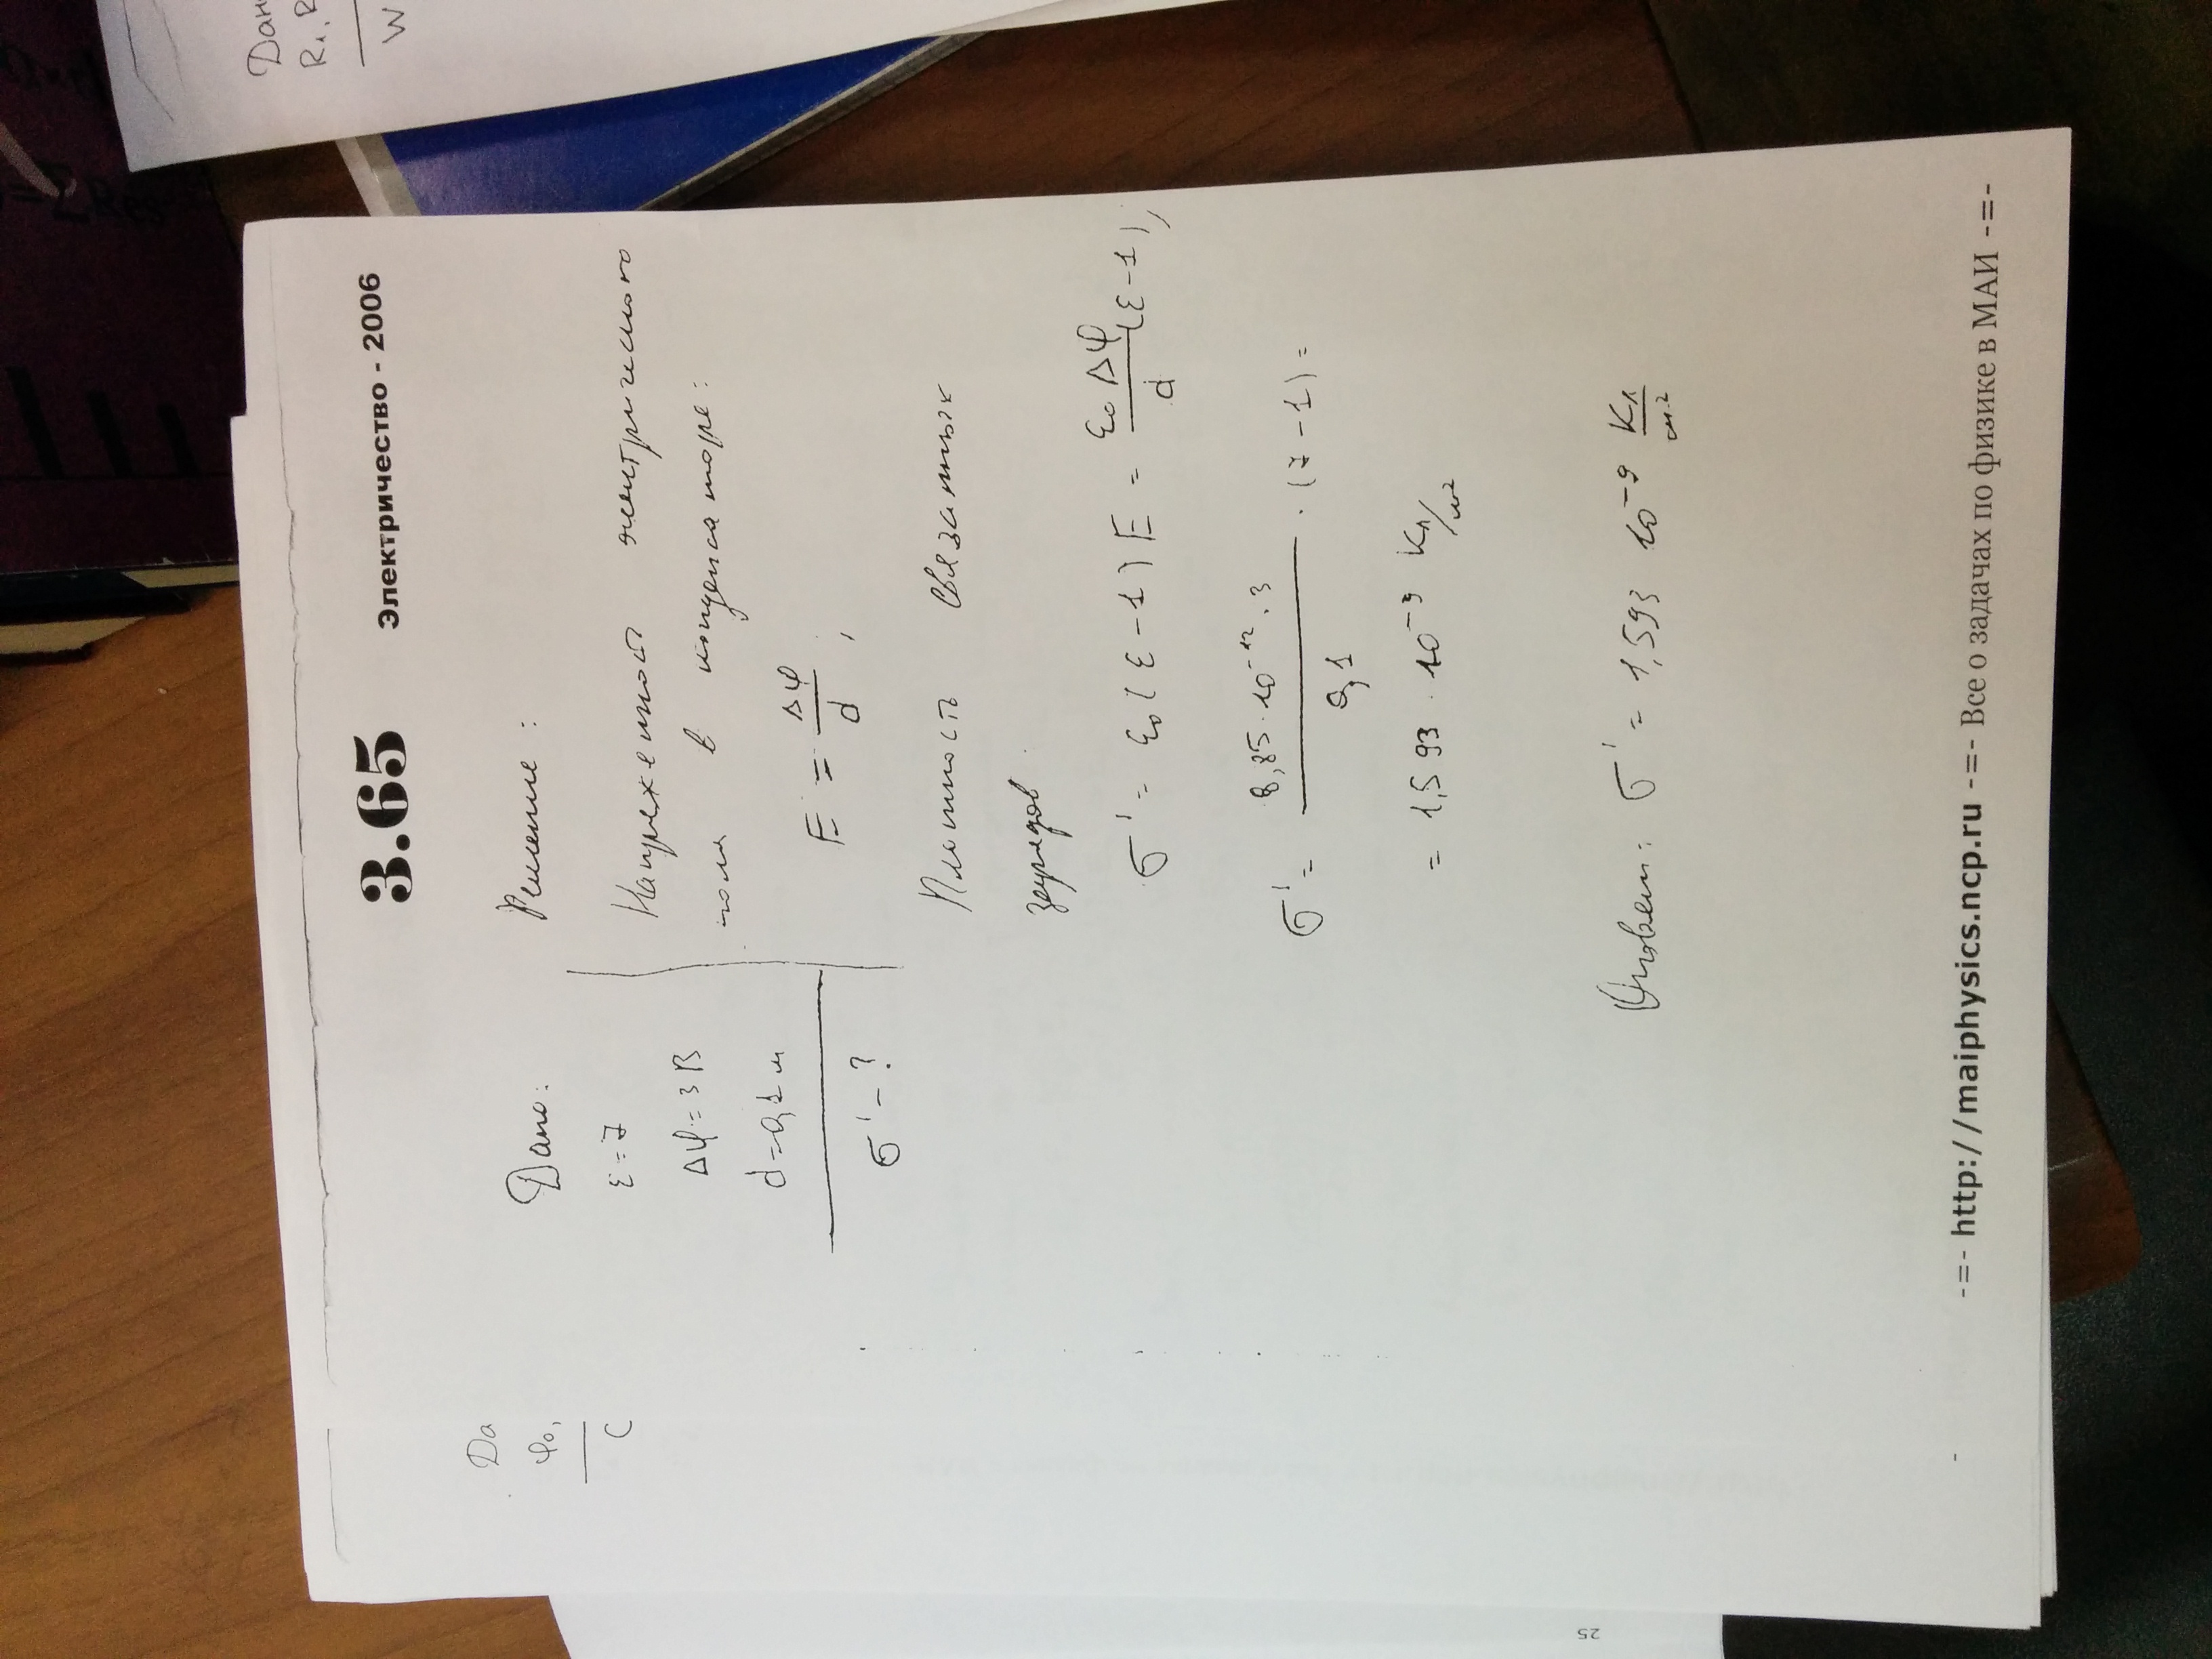 3.65 Электричество - 2006
Дано: Решение:
ε = 7
Δφ = 3 В
d = 0,1 м
σ' - ?
Напряженность электрического
поля в конденсаторе:
E = Δφ/d ,
Плотность связанных
зарядов
σ' = ε₀(ε-1)E = ε₀Δφ/d (ε-1),
σ' = 8,85·10⁻¹²·3/0,1 · (7-1) =
= 1,593 · 10⁻⁹ Кл/м²
Ответ: σ' = 1,593 10⁻⁹ Кл/м²
Da
φ₀,
C
-=- http://maiphysics.ncp.ru -=- Все о задачах по физике в МАИ -=-
Дан
R₁, R
W
=ΣRes
25